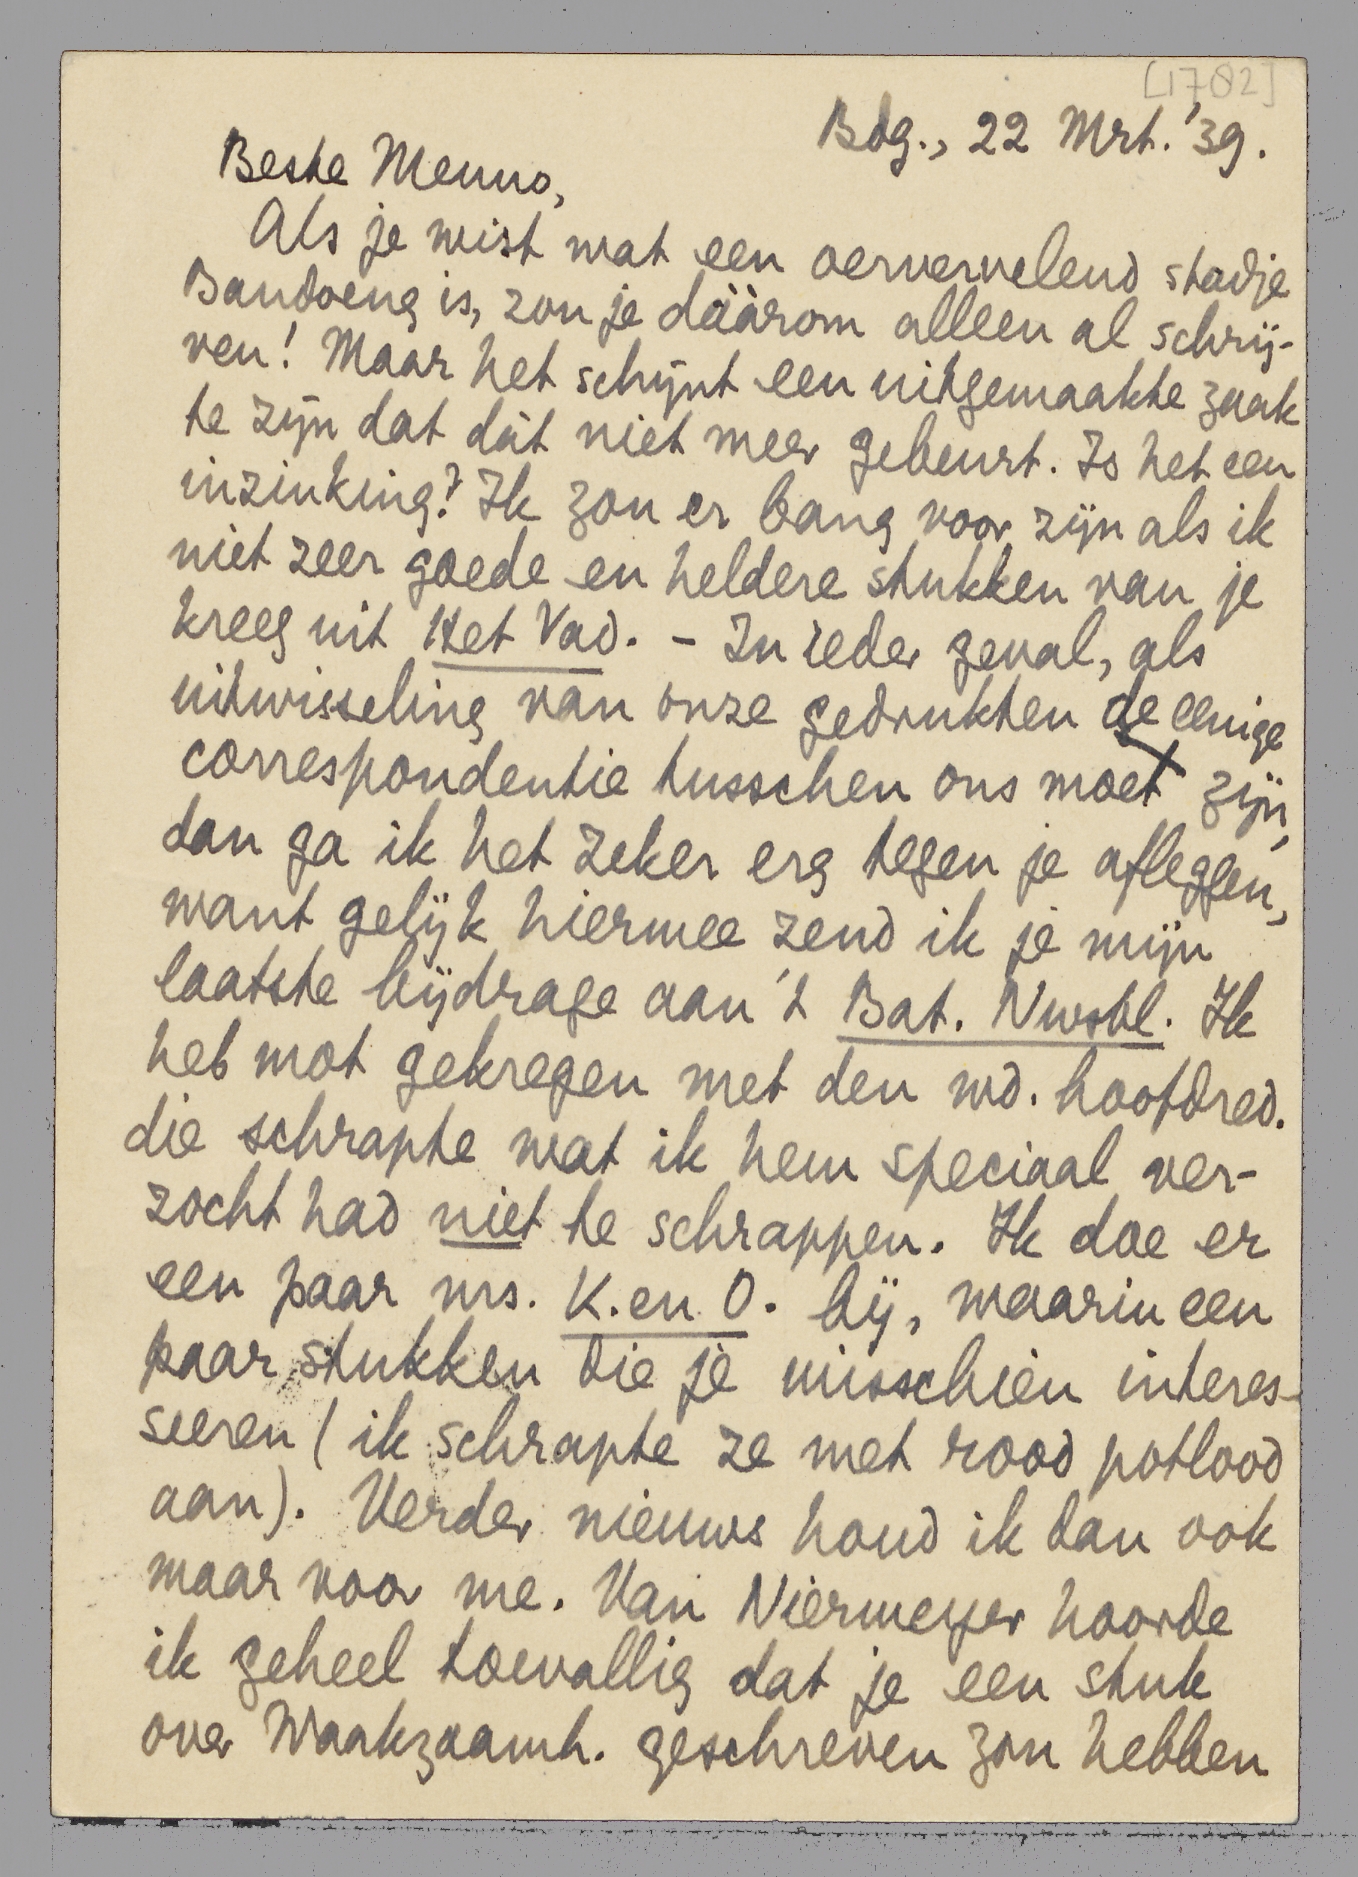 [1782]
Bdg., 22 Mrt. '39.
Beste Menno,
Als je wist wat een oervervelend stadje
Bandoeng is, zou je dáárom alleen al schrij-
ven! Maar het schijnt een uitgemaakte zaak
te zijn dat dàt niet meer gebeurt. Is het een
inzinking? Ik zou er bang voor zijn als ik
niet zeer goede en heldere stukken van je
kreeg uit Het Vad. – In ieder geval, als
uitwisseling van onze gedrukten de eenige
correspondentie tusschen ons moet zijn,
dan ga ik het zeker erg tegen je afleggen,
want gelijk hiermee zend ik je mijn
laatste bijdrage aan 't Bat. Nwsbl. Ik
heb mot gekregen met den wd. hoofdred.
die schrapte wat ik hem speciaal ver-
zocht had niet te schrappen. Ik doe er
een paar nrs. K. en O. bij, waarin een
paar stukken die je misschien interes-
seeren (ik schrapte ze met rood potlood
aan). Verder nieuws houd ik dan ook
maar voor me. Van Niermeyer hoorde
ik geheel toevallig dat je een stuk
over Waakzaamh. geschreven zou hebben